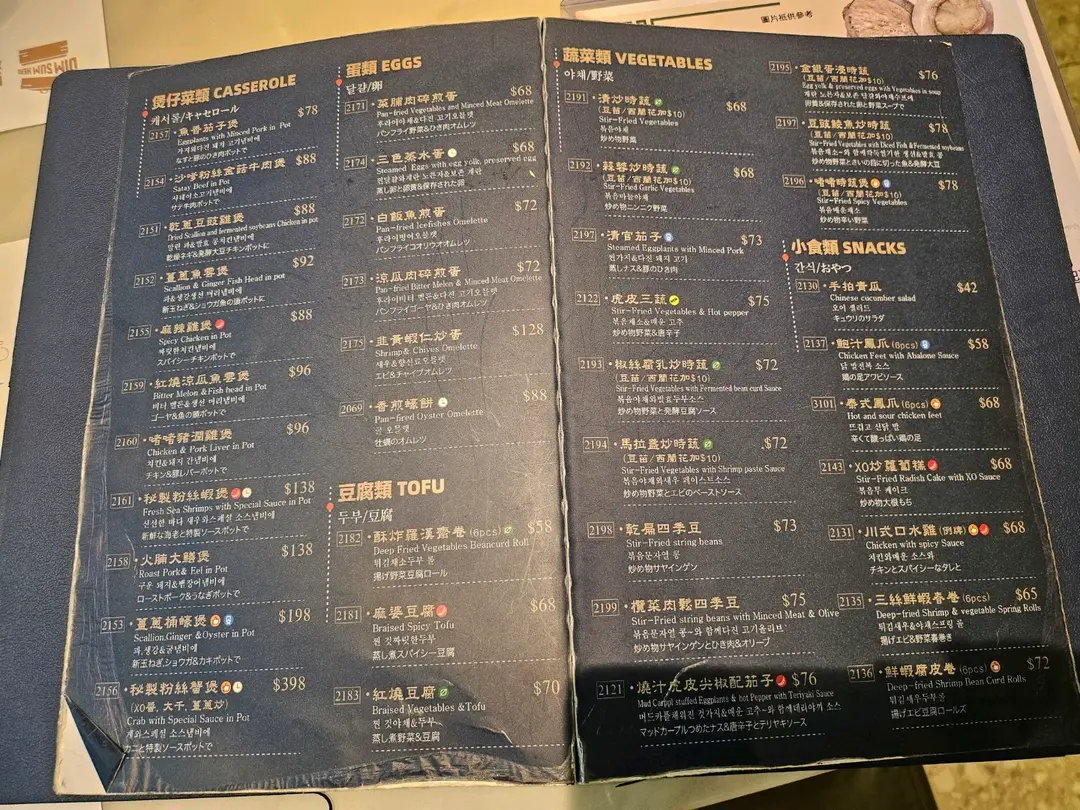 圖片祇供參考
DIM SUM HERE
煲仔菜類 CASSEROLE
캐서롤/キャセロール
2157 魚香茄子煲 $78
Eggplants with Minced Pork in Pot
가지와다진 돼지 고기냄비에
なすと豚のひき肉ポットで
2154 沙嗲粉絲金菇牛肉煲 $88
Satay Beef in Pot
사테이소고기냄비에
サテ牛肉ポットで
2151 乾蔥豆豉雞煲 $88
Dried Scallion and fermented soybeans Chicken in pot
말린 파&발효 콩치킨냄비에
乾燥ネギ&発酵大豆チキンポットに
2152 薑蔥魚雲煲 $92
Scallion & Ginger Fish Head in pot
파&생강생선 머리냄비에
新玉ねぎ&ショウガ魚の頭ポットに
2155 麻辣雞煲 $88
Spicy Chicken in Pot
짜릿한치킨냄비에
スパイシーチキンポットで
2159 紅燒涼瓜魚雲煲 $96
Bitter Melon &Fish head in Pot
비터 멜론&생선 머리냄비에
ゴーヤ&魚の頭ポットで
2160 啫啫豬潤雞煲 $96
Chicken & Pork Liver in Pot
치킨&돼지 간냄비에
チキン&豚レバーポットで
2161 秘製粉絲蝦煲 $138
Fresh Sea Shrimps with Special Sauce in Pot
신선한 바다 새우와스페셜 소스냄비에
新鮮な海老と特製ソースポットで
2158 火腩大鱔煲 $138
Roast Pork& Eel in Pot
구운 돼지&뱀장어냄비에
ローストポーク&うなぎポットで
2153 薑蔥桶蠔煲 $198
Scallion,Ginger & Oyster in Pot
파,생강&굴냄비에
新玉ねぎ,ショウガ&カキポットで
2156 秘製粉絲蟹煲 $398
(XO醬, 大千, 薑蔥炒)
Crab with Special Sauce in Pot
게와스페셜 소스냄비에
カニと特製ソースポットで
蛋類 EGGS
달걀/卵
2171 菜脯肉碎煎蛋 $68
Pan-fried Vegetables and Minced Meat Omelette
후라이야채&다진 고기오믈렛
パンフライ野菜&ひき肉オムレツ
2174 三色蒸水蛋 $68
Steamed Eggs with egg yolk, preserved egg
찐달걀와계란 노른자&보존 계란
蒸し卵と卵黄&保存された卵
2172 白飯魚煎蛋 $72
Pan-fried Icefishes Omelette
후라이빙어오믈렛
パンフライコオリウオオムレツ
2173 涼瓜肉碎煎蛋 $72
Pan-fried Bitter Melon & Minced Meat Omelette
후라이비터 멜론&다진 고기오믈렛
パンフライゴーヤ&ひき肉オムレツ
2175 韭黃蝦仁炒蛋 $128
Shrimp& Chives Omelette
새우&향신료오믈렛
エビ&チャイブオムレツ
2069 香煎蠔餅 $88
Pan-fired Oyster Omelette
굴 오믈렛
牡蠣のオムレツ
豆腐類 TOFU
두부/豆腐
2182 酥炸羅漢齋卷 (6pcs) $58
Deep Fried Vegetables Beancurd Roll
튀김채소두부 롤
揚げ野菜豆腐ロール
2181 麻婆豆腐 $68
Braised Spicy Tofu
찐 깃짜릿한두부
蒸し煮スパイシー豆腐
2183 紅燒豆腐 $70
Braised Vegetables &Tofu
찐 깃야채&두부
蒸し煮野菜&豆腐
蔬菜類 VEGETABLES
야채/野菜
2191 清炒時蔬 $68
(豆苗/西蘭花加$10)
Stir-Fried Vegetables
볶음야채
炒め物野菜
2192 蒜蓉炒時蔬 $68
(豆苗/西蘭花加$10)
Stir-Fried Garlic Vegetables
볶음마늘야채
炒め物ニンニク野菜
2197 清官茄子 $73
Steamed Eggplants with Minced Pork
찐가지&다진 돼지 고기
蒸しナス&豚のひき肉
2122 虎皮三蔬 $75
Stir-Fried Vegetables & Hot pepper
볶음채소&매운 고추
炒め物野菜&唐辛子
2193 椒絲腐乳炒時蔬 $72
(豆苗/西蘭花加$10)
Stir-Fried Vegetables with Fermented bean curd Sauce
볶음야채와발효두부소스
炒め物野菜と発酵豆腐ソース
2194 馬拉盞炒時蔬 $72
(豆苗/西蘭花加$10)
Stir-Fried Vegetables with Shrimp paste Sauce
볶음야채와새우 페이스트소스
炒め物野菜とエビのペーストソース
2198 乾扁四季豆 $73
Stir-Fried string beans
볶음문자열 콩
炒め物サヤインゲン
2199 欖菜肉鬆四季豆 $75
Stir-Fried string beans with Minced Meat & Olive
볶음문자열 콩-와 함께다진 고기올리브
炒め物サヤインゲンとひき肉&オリーブ
2121 燒汁虎皮尖椒配茄子 $76
Mud Carppl stuffed Eggplants & hot Pepper with Teriyaki Sauce
머드카플채워진 것가지&매운 고추-와 함께데리야끼 소스
マッドカープルつめたナス&唐辛子とテリヤキソース
2195 金銀蛋浸時蔬 $76
(豆苗/西蘭花加$10)
Egg yolk & preserved eggs with Vegetables in soup
계란 노른자&보존 달걀와야채수프에
卵黄&保存された卵と野菜スープで
2197 豆豉鯪魚炒時蔬 $78
(豆苗/西蘭花加$10)
Stir-Fried Vegetables with Diced Fish & Fermented soybeans
볶음채소-와 함께깍둑썰기한 생선&발효 콩
炒め物野菜とさいの目に切った魚&発酵大豆
2196 啫啫時蔬煲 $78
(豆苗/西蘭花加$10)
Stir-Fried Spicy Vegetables
볶음매운채소
炒め物辛い野菜
小食類 SNACKS
간식/おやつ
2130 手拍青瓜 $42
Chinese cucumber salad
오이 샐러드
キュウリのサラダ
2137 鮑汁鳳爪 (6pcs) $58
Chicken Feet with Abalone Sauce
닭 발전복 소스
鶏の足アワビソース
3101 泰式鳳爪 (6pcs) $68
Hot and sour chicken feet
뜨겁고 신닭 발
辛くて酸っぱい鶏の足
2143 XO炒蘿蔔糕 $68
Stir-Fried Radish Cake with XO Sauce
볶음무 케이크
炒め物大根もち
2131 川式口水雞 (例牌) $68
Chicken with spicy Sauce
치킨와매운 소스와
チキンとスパイシーなタレと
2135 三絲鮮蝦春卷 (6pcs) $65
Deep-fried Shrimp & vegetable Spring Rolls
튀김새우&야채스프링 롤
揚げエビ&野菜春巻き
2136 鮮蝦腐皮卷 (6pcs) $72
Deep-fried Shrimp Bean Curd Rolls
튀김새우두부롤
揚げエビ豆腐ロールズ